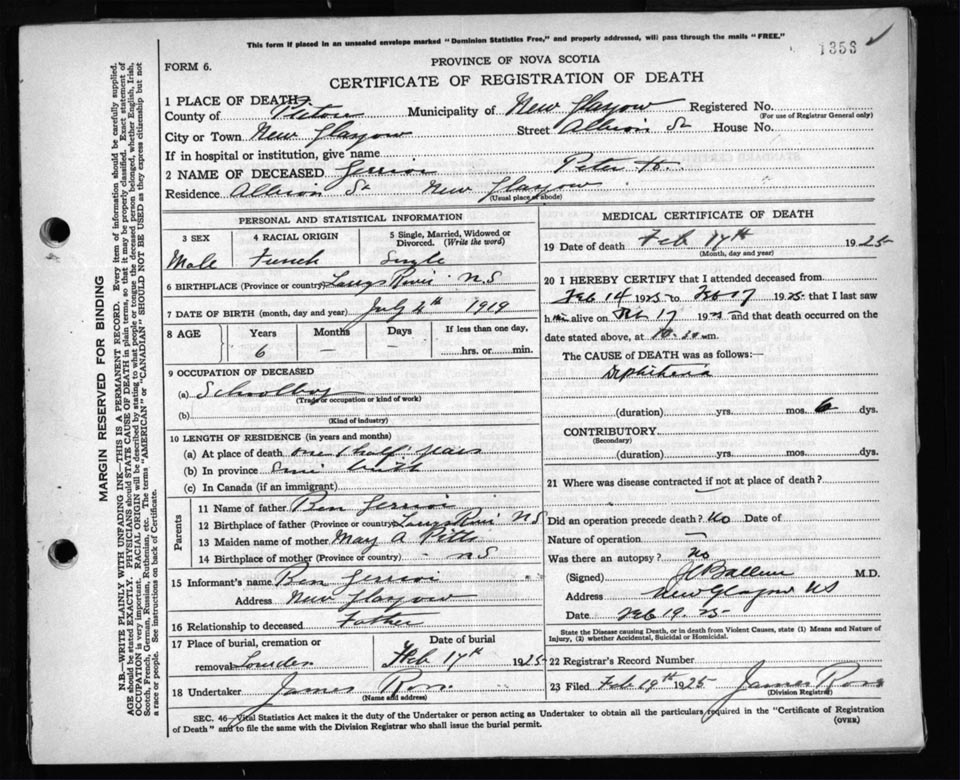 This form if placed in an unsealed envelope marked "Dominion Statistics Free," and properly addressed, will pass through the mails "FREE."
1356 ✓
FORM 6.
PROVINCE OF NOVA SCOTIA
CERTIFICATE OF REGISTRATION OF DEATH
1 PLACE OF DEATH
County of Pictou Municipality of New Glasgow Registered No.
(For use of Registrar General only)
City or Town New Glasgow Street Albion St House No.
If in hospital or institution, give name
2 NAME OF DECEASED Gerrior Peter H.
Residence Albion St New Glasgow
(Usual place of abode)
PERSONAL AND STATISTICAL INFORMATION
3 SEX 4 RACIAL ORIGIN 5 Single, Married, Widowed or Divorced. (Write the word)
Male French Single
6 BIRTHPLACE (Province or country) Larrys River N.S
7 DATE OF BIRTH (month, day and year) July 4th 1919
8 AGE Years Months Days If less than one day,
6 — — hrs. or min.
9 OCCUPATION OF DECEASED
(a) Schoolboy
(Trade or occupation or kind of work)
(b)
(Kind of industry)
10 LENGTH OF RESIDENCE (in years and months)
(a) At place of death one & half years
(b) In province Since birth
(c) In Canada (if an immigrant)
Parents
11 Name of father Ben Gerrior
12 Birthplace of father (Province or country) Larrys River N.S
13 Maiden name of mother Mary A Pitts
14 Birthplace of mother (Province or country) N.S
15 Informant's name Ben Gerrior
Address New Glasgow
16 Relationship to deceased Father
17 Place of burial, cremation or removal Lourdes Date of burial Feb 17th 1925
18 Undertaker James Ross
(Name and address)
MEDICAL CERTIFICATE OF DEATH
19 Date of death Feb 17th 1925
(Month, day and year)
20 I HEREBY CERTIFY that I attended deceased from
Feb 14 1925 to Feb 17 1925 that I last saw
him alive on Feb 17 1925 and that death occurred on the
date stated above, at 10.30 m.
The CAUSE OF DEATH was as follows:
Diphtheria
(duration) yrs. mos. 6 dys.
CONTRIBUTORY
(Secondary)
(duration) yrs. mos. dys.
21 Where was disease contracted if not at place of death?
Did an operation precede death? No Date of
Nature of operation —
Was there an autopsy? No
(Signed) M.D.
Address New Glasgow NS
Date Feb 19. 25
State the Disease causing Death, or in death from Violent Causes, state (1) Means and Nature of Injury, (2) whether Accidental, Suicidal or Homicidal.
22 Registrar's Record Number
23 Filed Feb 19th 1925 James Ross
(Division Registrar)
SEC. 46 Vital Statistics Act makes it the duty of the Undertaker or person acting as Undertaker to obtain all the particulars required in the "Certificate of Registration
of Death" and to file the same with the Division Registrar who shall issue the burial permit.
(OVER)
MARGIN RESERVED FOR BINDING
N.B.—WRITE PLAINLY WITH UNFADING INK—THIS IS A PERMANENT RECORD. Every item of information should be carefully supplied.
AGE should be stated EXACTLY. PHYSICIANS should STATE CAUSE OF DEATH in plain terms, so that it may be properly classified. Exact statement of
OCCUPATION is very important. RACIAL ORIGIN will be described by stating to what people or tongue the deceased person belonged, whether English, Irish,
Scotch, French, German, Russian, Ruthenian, etc. The terms "AMERICAN" or "CANADIAN" SHOULD NOT BE USED as they express citizenship but not
a race or people. See instructions on back of Certificate.